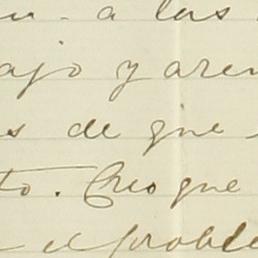 a las
ajo y aren
s de que
to. Creo que
el proble